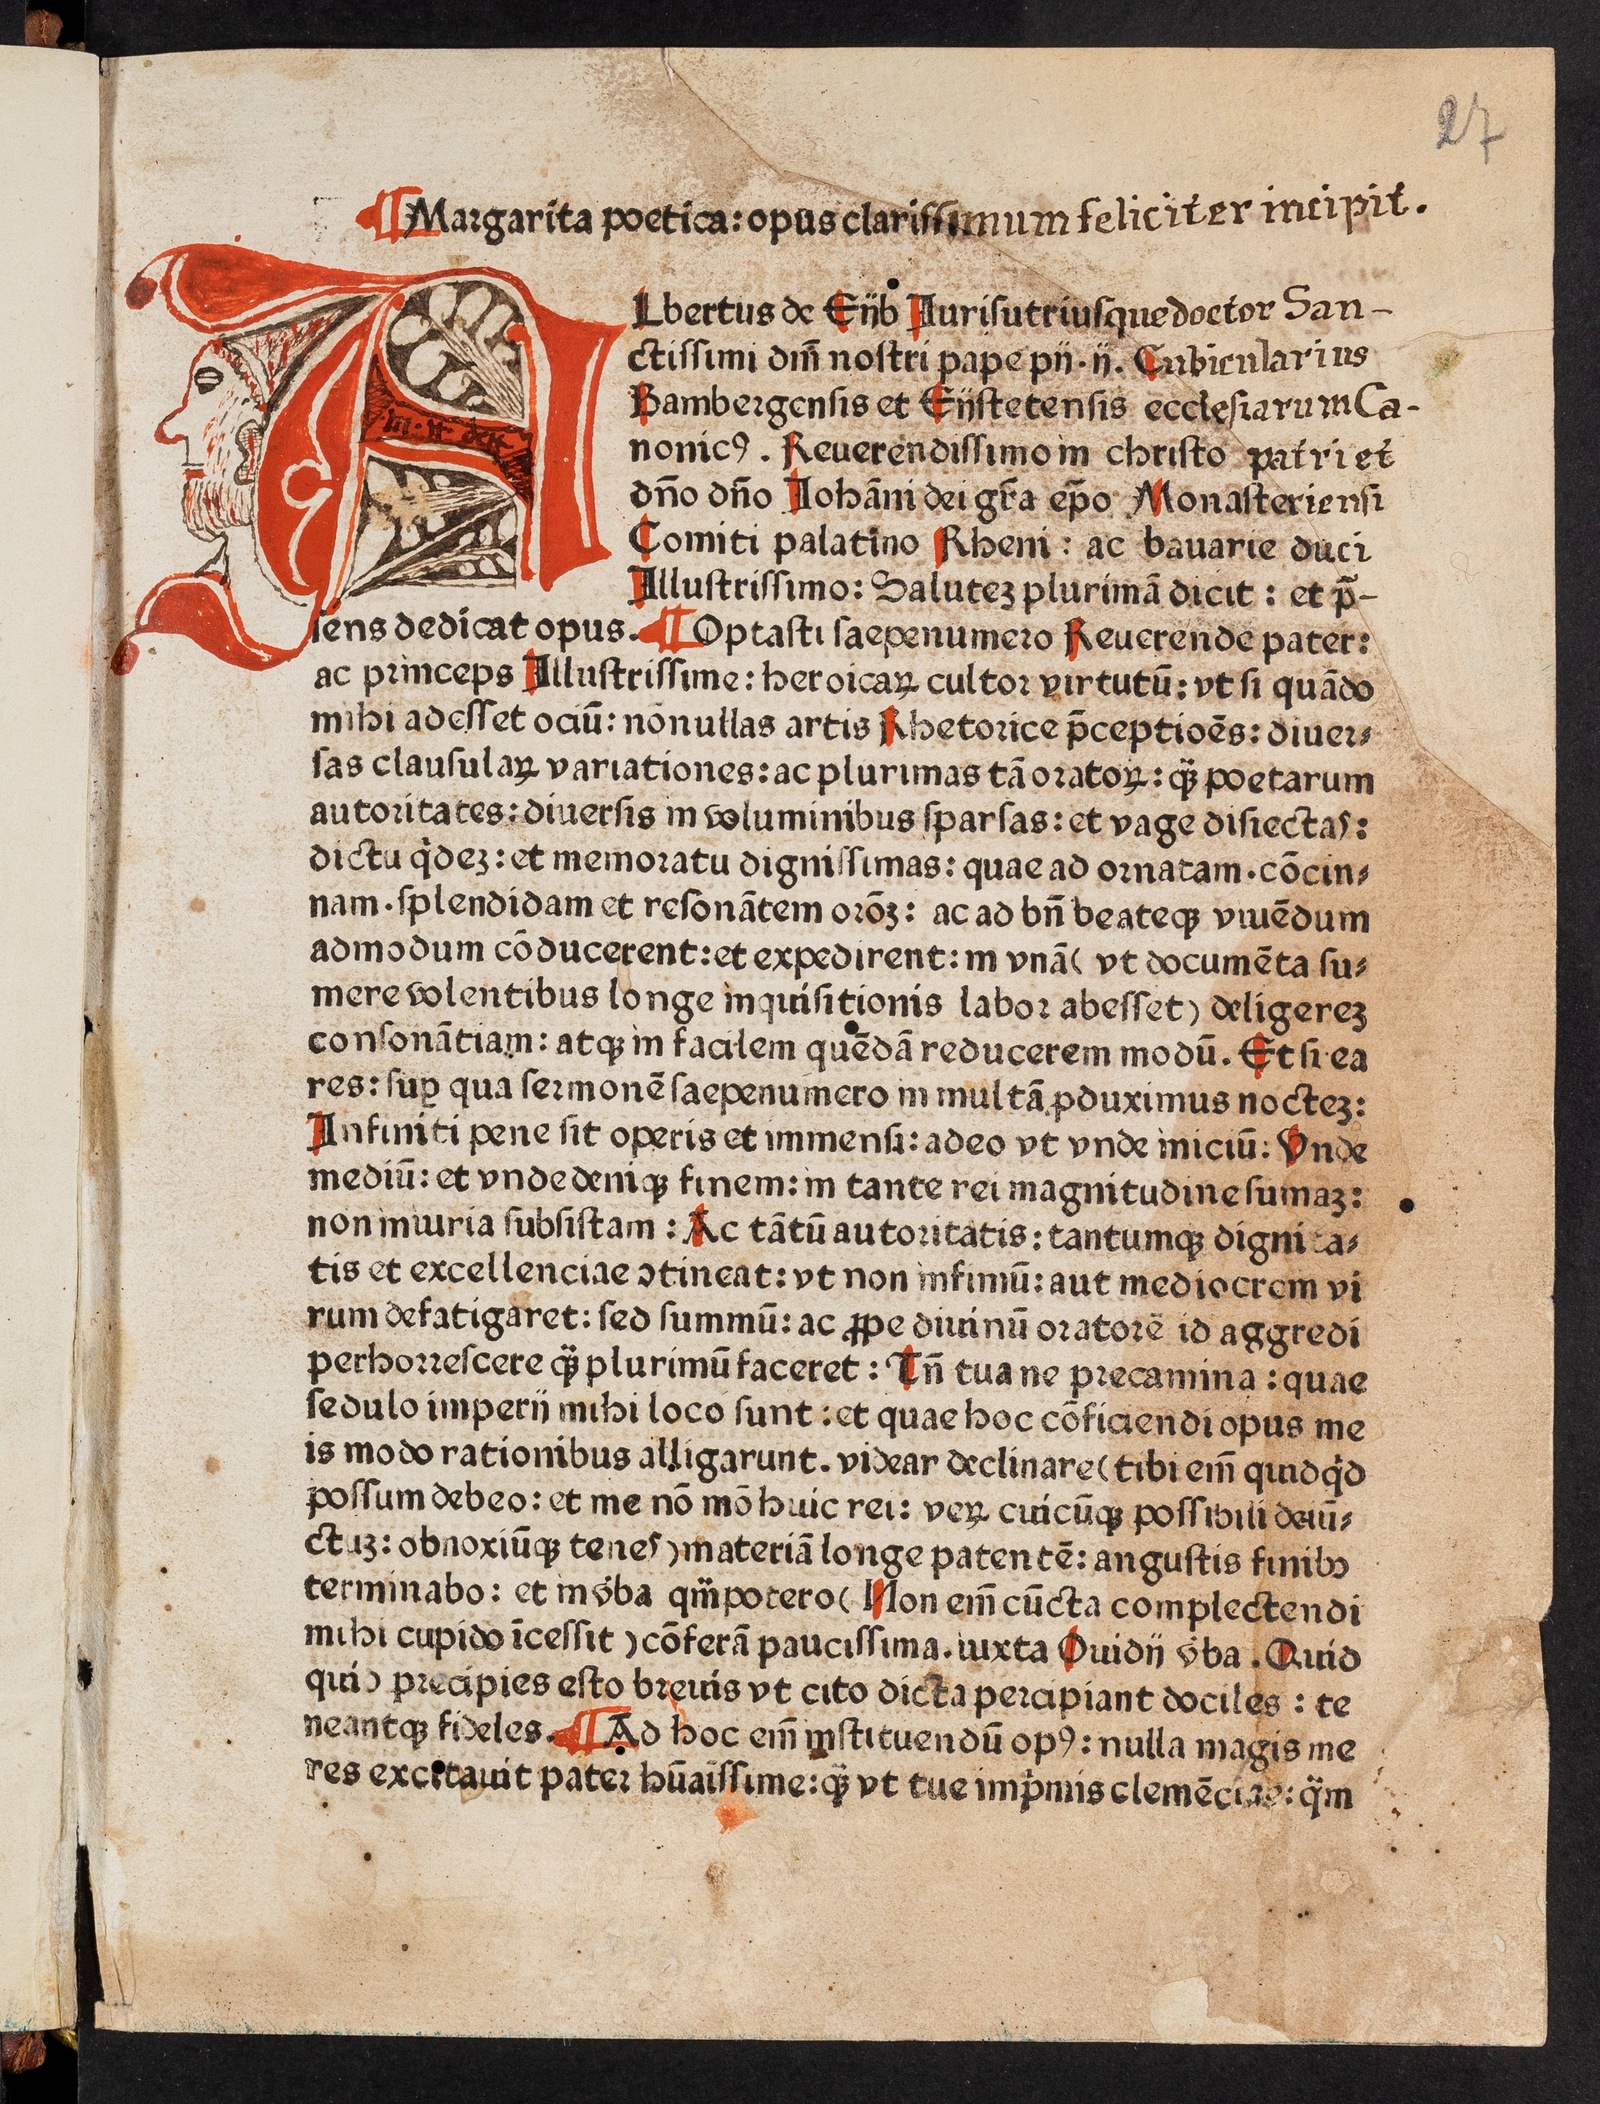 27
¶Margarita poetica: opus clarissimum feliciter incipit.
ALbertus de Eijb Iurisutriusque doctor San-
ctissimi dm̄ nostri pape pij·ij. Cubicularius
Bambergensis et Eijstetensis ecclesiarum Ca-
nonicꝰ. Reuerendissimo in christo patri et
dn̄o dn̄o Iohāni dei gr̄a ep̄o Monasteriensi
Comiti palatino Rheni: ac bauarie duci
Illustrissimo: Saluteꝫ plurimā dicit: et p̄-
sens dedicat opus. ¶Optasti saepenumero Reuerende pater:
ac princeps Illustrissime: heroicaꝝ cultor virtutū: vt si quādo
mihi adesset ociū: nōnullas artis Rhetorice p̄ceptiōes: diuer⸗
sas clausulaꝝ variationes: ac plurimas tā oratoꝝ: qꝫ̈ poetarum
autoritates: diuersis in voluminibus sparsas: et vage disiectas:
dictu q̇deꝫ: et memoratu dignissimas: quae ad ornatam·cōcin⸗
nam·splendidam et resonātem orōꝫ: ac ad bn̄ beateqꝫ viuēdum
admodum cōducerent: et expedirent: in vnā( vt documēta su⸗
mere volentibus longe inquisitionis labor abesset) deligereꝫ
consonātiam: atqꝫ in facilem quēdā reducerem modū. Et si ea
res: suꝑ qua sermonē saepenumero in multā ꝓduximus nocteꝫ:
Infiniti pene sit operis et immensi: adeo vt vnde iniciū: Vnde
mediū: et vnde deniqꝫ finem: in tante rei magnitudine sumaꝫ:
non iniuria subsistam: Ac tātū autoritatis: tantumqꝫ dignita⸗
tis et excellenciae ꝯtineat: vt non infimū: aut mediocrem vi
rum defatigaret: sed summū: ac ꝓpe diuinū oratorē id aggredi
perhorrescere qꝫ̈ plurimū faceret: Tn̄ tua ne precamina: quae
sedulo imperij mihi loco sunt: et quae hoc cōficiendi opus me
is modo rationibus alligarunt. videar declinare( tibi em̄ quidq̇d
possum debeo: et me nō mō huic rei: veꝝ cuicūqꝫ possibili deiū⸗
ctuꝫ: obnoxiūqꝫ tenes) materiā longe patentē: angustis finibꝰ
terminabo: et in v̇ba qm̈ potero( Non em̄ cūcta complectendi
mihi cupido īcessit) cōferā paucissima. iuxta Ouidij v̇ba. Quid
quid precipies esto breuis vt cito dicta percipiant dociles: te
neantqꝫ fideles. ¶Ad hoc em̄ instituendū opꝰ: nulla magis me
res excitauit pater hūaīssime: qꝫ̈ vt tue imp̍mis clemēciae: q̈m